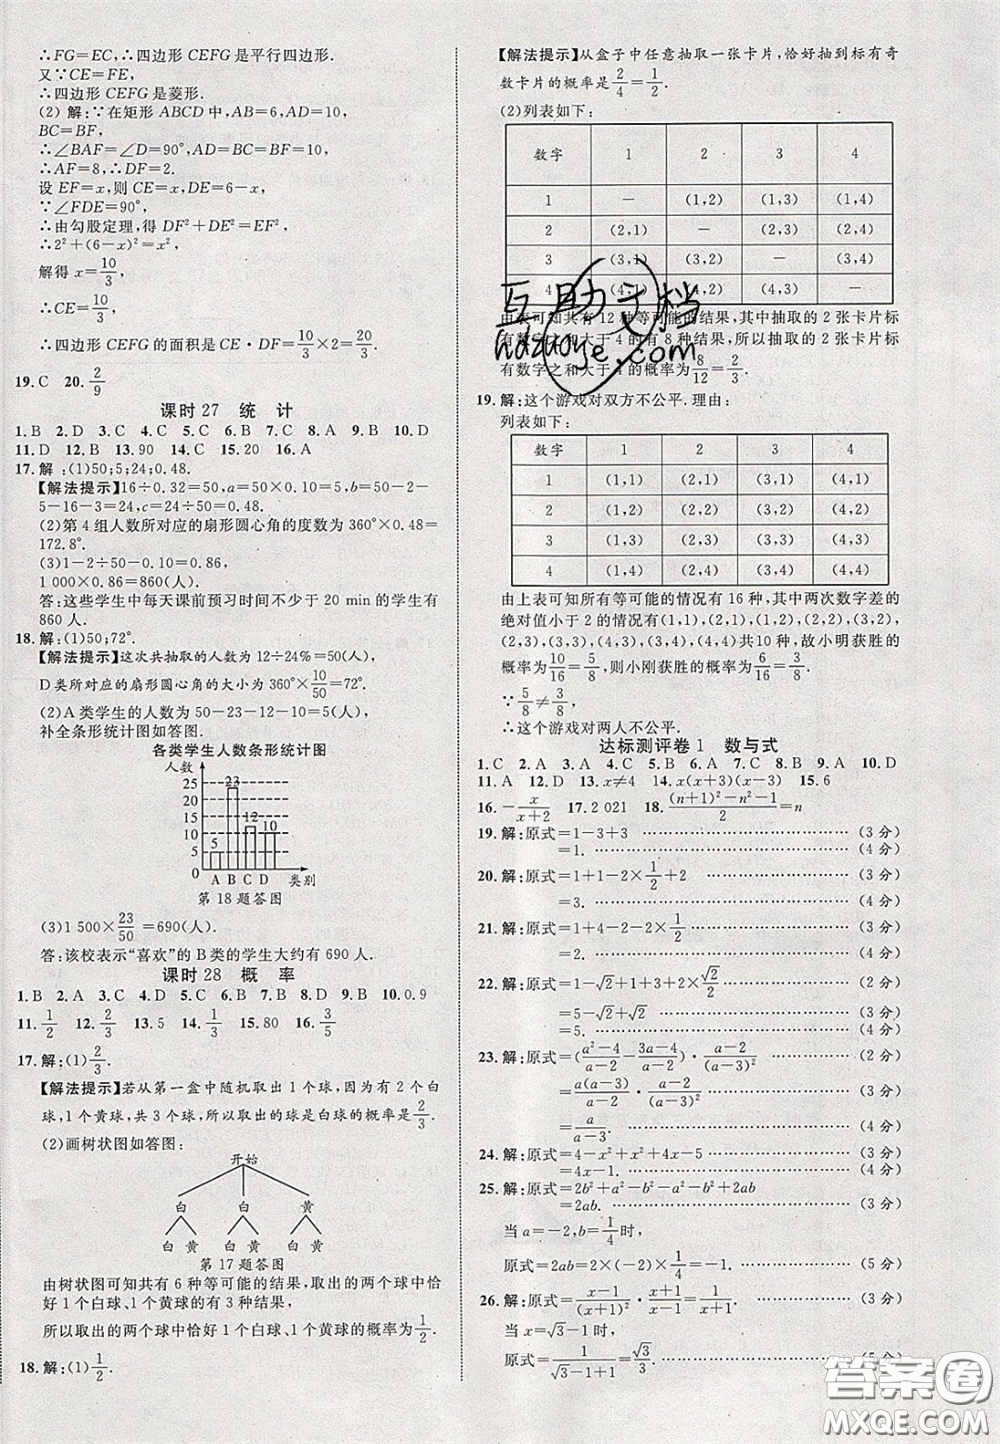 ∴FG=EC,∴四边形 CEFG 是平行四边形.
又∵CE=FE,
∴四边形 CEFG 是菱形.
(2) 解:∵在矩形 ABCD 中,AB=6,AD=10,
BC=BF,
∴∠BAF=∠D=90°,AD=BC=BF=10,
∴AF=8,∴DF=2.
设 EF=x,则 CE=x,DE=6-x,
∵∠FDE=90°,
∴由勾股定理,得 DF²+DE²=EF²,
∴2²+(6-x)²=x²,
解得 x=10/3,
∴CE=10/3,
∴四边形 CEFG 的面积是 CE·DF=10/3×2=20/3.
19.C 20.2/9
课时 27 统 计
1.B 2.D 3.C 4.C 5.C 6.B 7.C 8.A 9.B 10.D
11.D 12.B 13.90 14.C 15.20 16.A
17.解:(1)50;5;24;0.48.
【解法提示】16÷0.32=50,a=50×0.1=5,b=50-2-
5-16-3=24,c=24÷50=0.48.
(2)第 4 组人数所对应的扇形圆心角的度数为 360°×0.48=
172.8°.
(3)1-2÷50-0.1=0.86,
1 000×0.86=860(人).
答:这些学生中每天课前预习时间不少于 20 min 的学生有
860 人.
18.解:(1)50;72°.
【解法提示】这次共抽取的人数为 12÷24%=50(人),
D 类所对应的扇形圆心角的大小为 360°×10/50=72°.
(2)A 类学生的人数为 50-23-12-10=5(人),
补全条形统计图如答图.
各类学生人数条形统计图
人数
25
20
15
10
5
0
5 23 12 10
A B C D 类别
第 18 题答图
(3)1 500×23/50=690(人).
答:该校表示“喜欢”的 B 类的学生大约有 690 人.
课时 28 概 率
1.B 2.A 3.C 4.D 5.A 6.C 7.D 8.B 9.B 10.0.9
11.1/2 12.2/3 13.5 14.1/3 15.80 16.3/5
17.解:(1)2/3.
【解法提示】若从第一盒中随机取出 1 个球,因为有 2 个白
球,1 个黄球,共 3 个球,所以取出的球是白球的概率是2/3.
(2)画树状图如答图:
开始
白 白 黄
白 黄 白 黄 白 黄
第 17 题答图
由树状图可知共有 6 种等可能的结果,取出的两个球中恰
好 1 个白球、1 个黄球的有 3 种结果,
所以取出的两个球中恰好 1 个白球、1 个黄球的概率为1/2.
18.解:(1)1/2.
【解法提示】从盒子中任意抽取一张卡片,恰好抽到标有奇
数卡片的概率是2/4=1/2.
(2)列表如下:
数字 1 2 3 4
1 — (1,2) (1,3) (1,4)
2 (2,1) — (2,3) (2,4)
3 (3,1) (3,2) — (3,4)
4 (4,1) (4,2) (4,3) —
由表可知共有 12 种等可能的结果,其中抽取的 2 张卡片标
有数字之和大于 4 的有 8 种结果,所以抽取的 2 张卡片标
有数字之和大于 4 的概率为8/12=2/3.
19.解:这个游戏对双方不公平.理由:
列表如下:
数字 1 2 3 4
1 (1,1) (2,1) (3,1) (4,1)
2 (1,2) (2,2) (3,2) (4,2)
3 (1,3) (2,3) (3,3) (4,3)
4 (1,4) (2,4) (3,4) (4,4)
由上表可知所有等可能的情况有 16 种,其中两次数字差的
绝对值小于 2 的情况有(1,1),(2,1),(1,2),(2,2),(3,2),
(2,3),(3,3),(4,3),(3,4),(4,4)共10 种,故小明获胜的
概率为10/16=5/8,则小刚获胜的概率为6/16=3/8.
∵5/8≠3/8,
∴这个游戏对两人不公平.
达标测评卷 1 数与式
1.C 2.A 3.A 4.C 5.C 6.B 7.A 8.C 9.A 10.D
11.A 12.D 13.x≠4 14.x(x+3)(x-3) 15.6
16.-x/(x+2) 17.2 021 18.((n+1)²-n²-1)/2=n
19.解:原式=1-3+3 ………… (3 分)
=1. ………… (4 分)
20.解:原式=1+1-2×1/2+2 ………… (3 分)
=3. ………… (4 分)
21.解:原式=1+4-2-2×1/2 ………… (3 分)
=2. ………… (4 分)
22.解:原式=1-√2+1+3+2×√2/2 ………… (3 分)
=5-√2+√2 ………… (4 分)
=5. ………… (5 分)
23.解:原式=((a²-4)/(a-2)-(3a-4)/(a-2))·(a-2)/(a-3)² ………… (2 分)
=a(a-3)/(a-2)·(a-2)/(a-3)² ………… (3 分)
=a/(a-3). ………… (4 分)
24.解:原式=4-x²+x²+4x-5 ………… (3 分)
=4x-1. ………… (4 分)
25.解:原式=2b²+a²-b²-a²-b²+2ab
=2ab. ………… (3 分)
当 a=-2,b=1/4时,
原式=2ab=2×(-2)×1/4=-1. ………… (5 分)
26.解:原式=(x-1)/(x+1)²·(x+1)/(x-1)=1/(x+1). ………… (3 分)
当 x=√3-1时,
原式=1/(√3-1+1)=√3/3. ………… (5 分)
互助文档
hdzuoye.com
答案圈
MXQE.COM